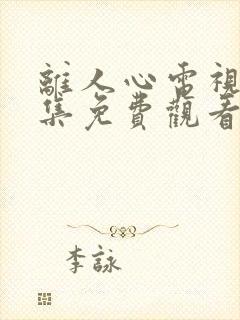 離人心電視
集免費觀看
李詠